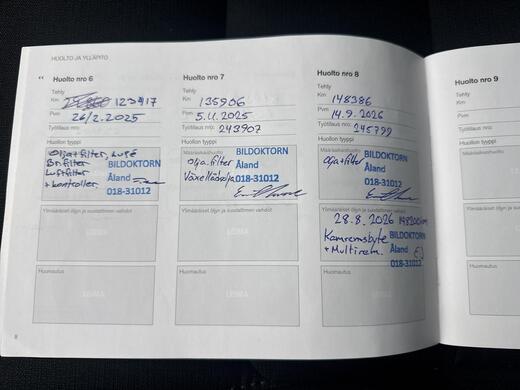 HUOLTO JA YLLÄPITO
“ Huolto nro 6
Tehty
Km 123417
Pvm 26/2.2025
Työtilaus nro:
Huollon tyyppi
Olja+filter, kupé
Br.filter
Luftfilter
+kontroller.
BILDOKTORN
Åland
018-31012
Ylimääräiset öljyn ja suodattimen vaihdot
LEIMA
Huomautus
LEIMA
8
Huolto nro 7
Tehty
Km 135906
Pvm 5.11.2025
Työtilaus nro: 243907
Huollon tyyppi
Määräaikaishuolto
Olja.filter
Växellådsolja
BILDOKTORN
Åland
018-31012
Ylimääräiset öljyn ja suodattimen vaihdot
LEIMA
Huomautus
LEIMA
Huolto nro 8
Tehty
Km 148386
Pvm 14.9.2026
Työtilaus nro: 245799
Huollon tyyppi
Määräaikaishuolto
Olja+filter
BILDOKTORN
Åland
018-31012
Ylimääräiset öljyn ja suodattimen vaihdot
28.8.2026 148200km
Kamremsbyte
+Multirem.
BILDOKTORN
Åland
018-31012
Huomautus
LEIMA
Huolto nro 9
Tehty
Km
Pvm
Työtilaus nro:
Huollon tyyppi
Ylimääräiset
Huomautus